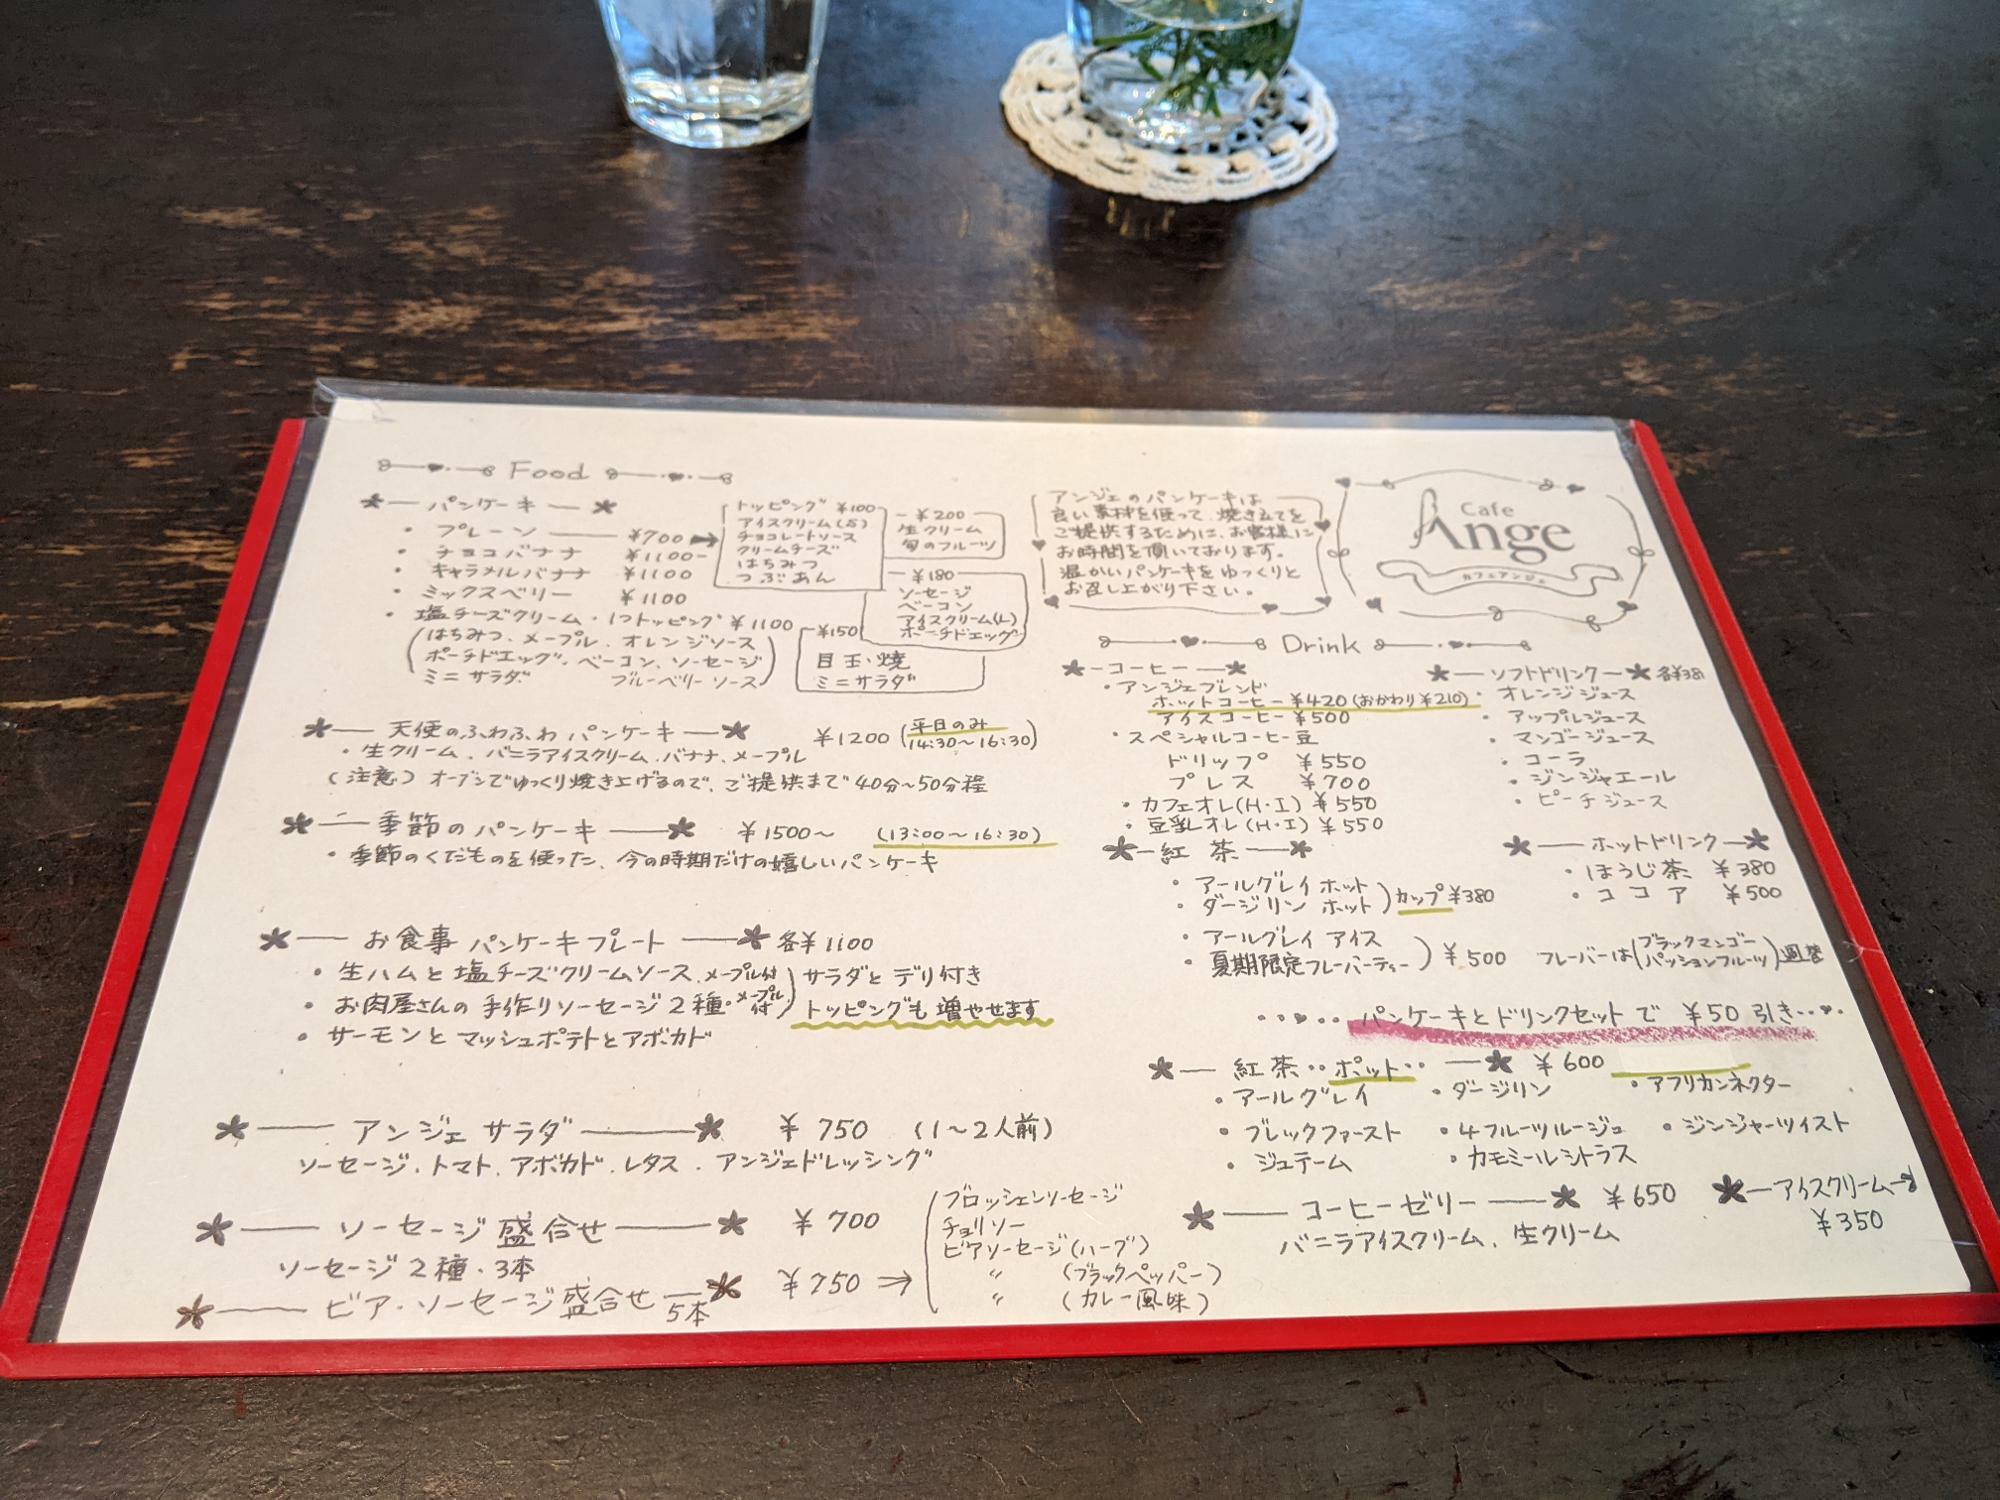 Food
パンケーキ
・プレーン ¥700
・チョコバナナ ¥1100
・キャラメルバナナ ¥1100
・ミックスベリー ¥1100
・塩チーズクリーム・1つトッピング ¥1100
(はちみつ、メープル、オレンジソース
ポーチドエッグ、ベーコン、ソーセージ
ミニサラダ ブルーベリーソース)
トッピング ¥100
アイスクリーム(S)
チョコレートソース
クリームチーズ
はちみつ
つぶあん
¥200
生クリーム
旬のフルーツ
¥180
ソーセージ
ベーコン
アイスクリーム(L)
ポーチドエッグ
¥150
目玉焼
ミニサラダ
天使のふわふわパンケーキ ¥1200 (平日のみ
14:30〜16:30)
・生クリーム、バニラアイスクリーム、バナナ、メープル
(注意) オーブンでゆっくり焼き上げるので、ご提供まで40分〜50分程
季節のパンケーキ ¥1500〜 (13:00〜16:30)
・季節のくだものを使った、今の時期だけの嬉しいパンケーキ
お食事パンケーキプレート 各¥1100
・生ハムと塩チーズクリームソース、メープル付
・お肉屋さんの手作りソーセージ2種・メープル付
・サーモンとマッシュポテトとアボカド
サラダとデリ付き
トッピングも増やせます
アンジェサラダ ¥750 (1〜2人前)
ソーセージ、トマト、アボカド、レタス、アンジェドレッシング
ソーセージ盛合せ ¥700
ソーセージ2種・3本
ビア・ソーセージ盛合せ 5本 ¥750→
ブロッシェンソーセージ
チョリソー
ビアソーセージ(ハーブ)
〃 (ブラックペッパー)
〃 (カレー風味)
アンジェのパンケーキは
良い素材を使って、焼き立てを
ご提供するために、お客様に
お時間を頂いております。
温かいパンケーキをゆっくりと
お召し上がり下さい。
Cafe
Ange
カフェアンジェ
Drink
コーヒー
・アンジェブレンド
ホットコーヒー ¥420 (おかわり¥210)
アイスコーヒー ¥500
・スペシャルコーヒー豆
ドリップ ¥550
プレス ¥700
・カフェオレ(H・I) ¥550
・豆乳オレ(H・I) ¥550
ソフトドリンク 各¥381
・オレンジジュース
・アップルジュース
・マンゴージュース
・コーラ
・ジンジャエール
・ピーチジュース
紅茶
・アールグレイ ホット
・ダージリン ホット
カップ ¥380
・アールグレイ アイス
・夏期限定フレーバーティー
¥500 フレーバーは(ブラックマンゴー
パッションフルーツ)週替
ホットドリンク
・ほうじ茶 ¥380
・ココア ¥500
パンケーキとドリンクセットで ¥50引き
紅茶‥ポット‥ ¥600
・アールグレイ ・ダージリン ・アフリカンネクター
・ブレックファースト ・4フルーツルージュ ・ジンジャーツイスト
・ジュテーム ・カモミールシトラス
コーヒーゼリー ¥650
バニラアイスクリーム、生クリーム
アイスクリーム
¥350